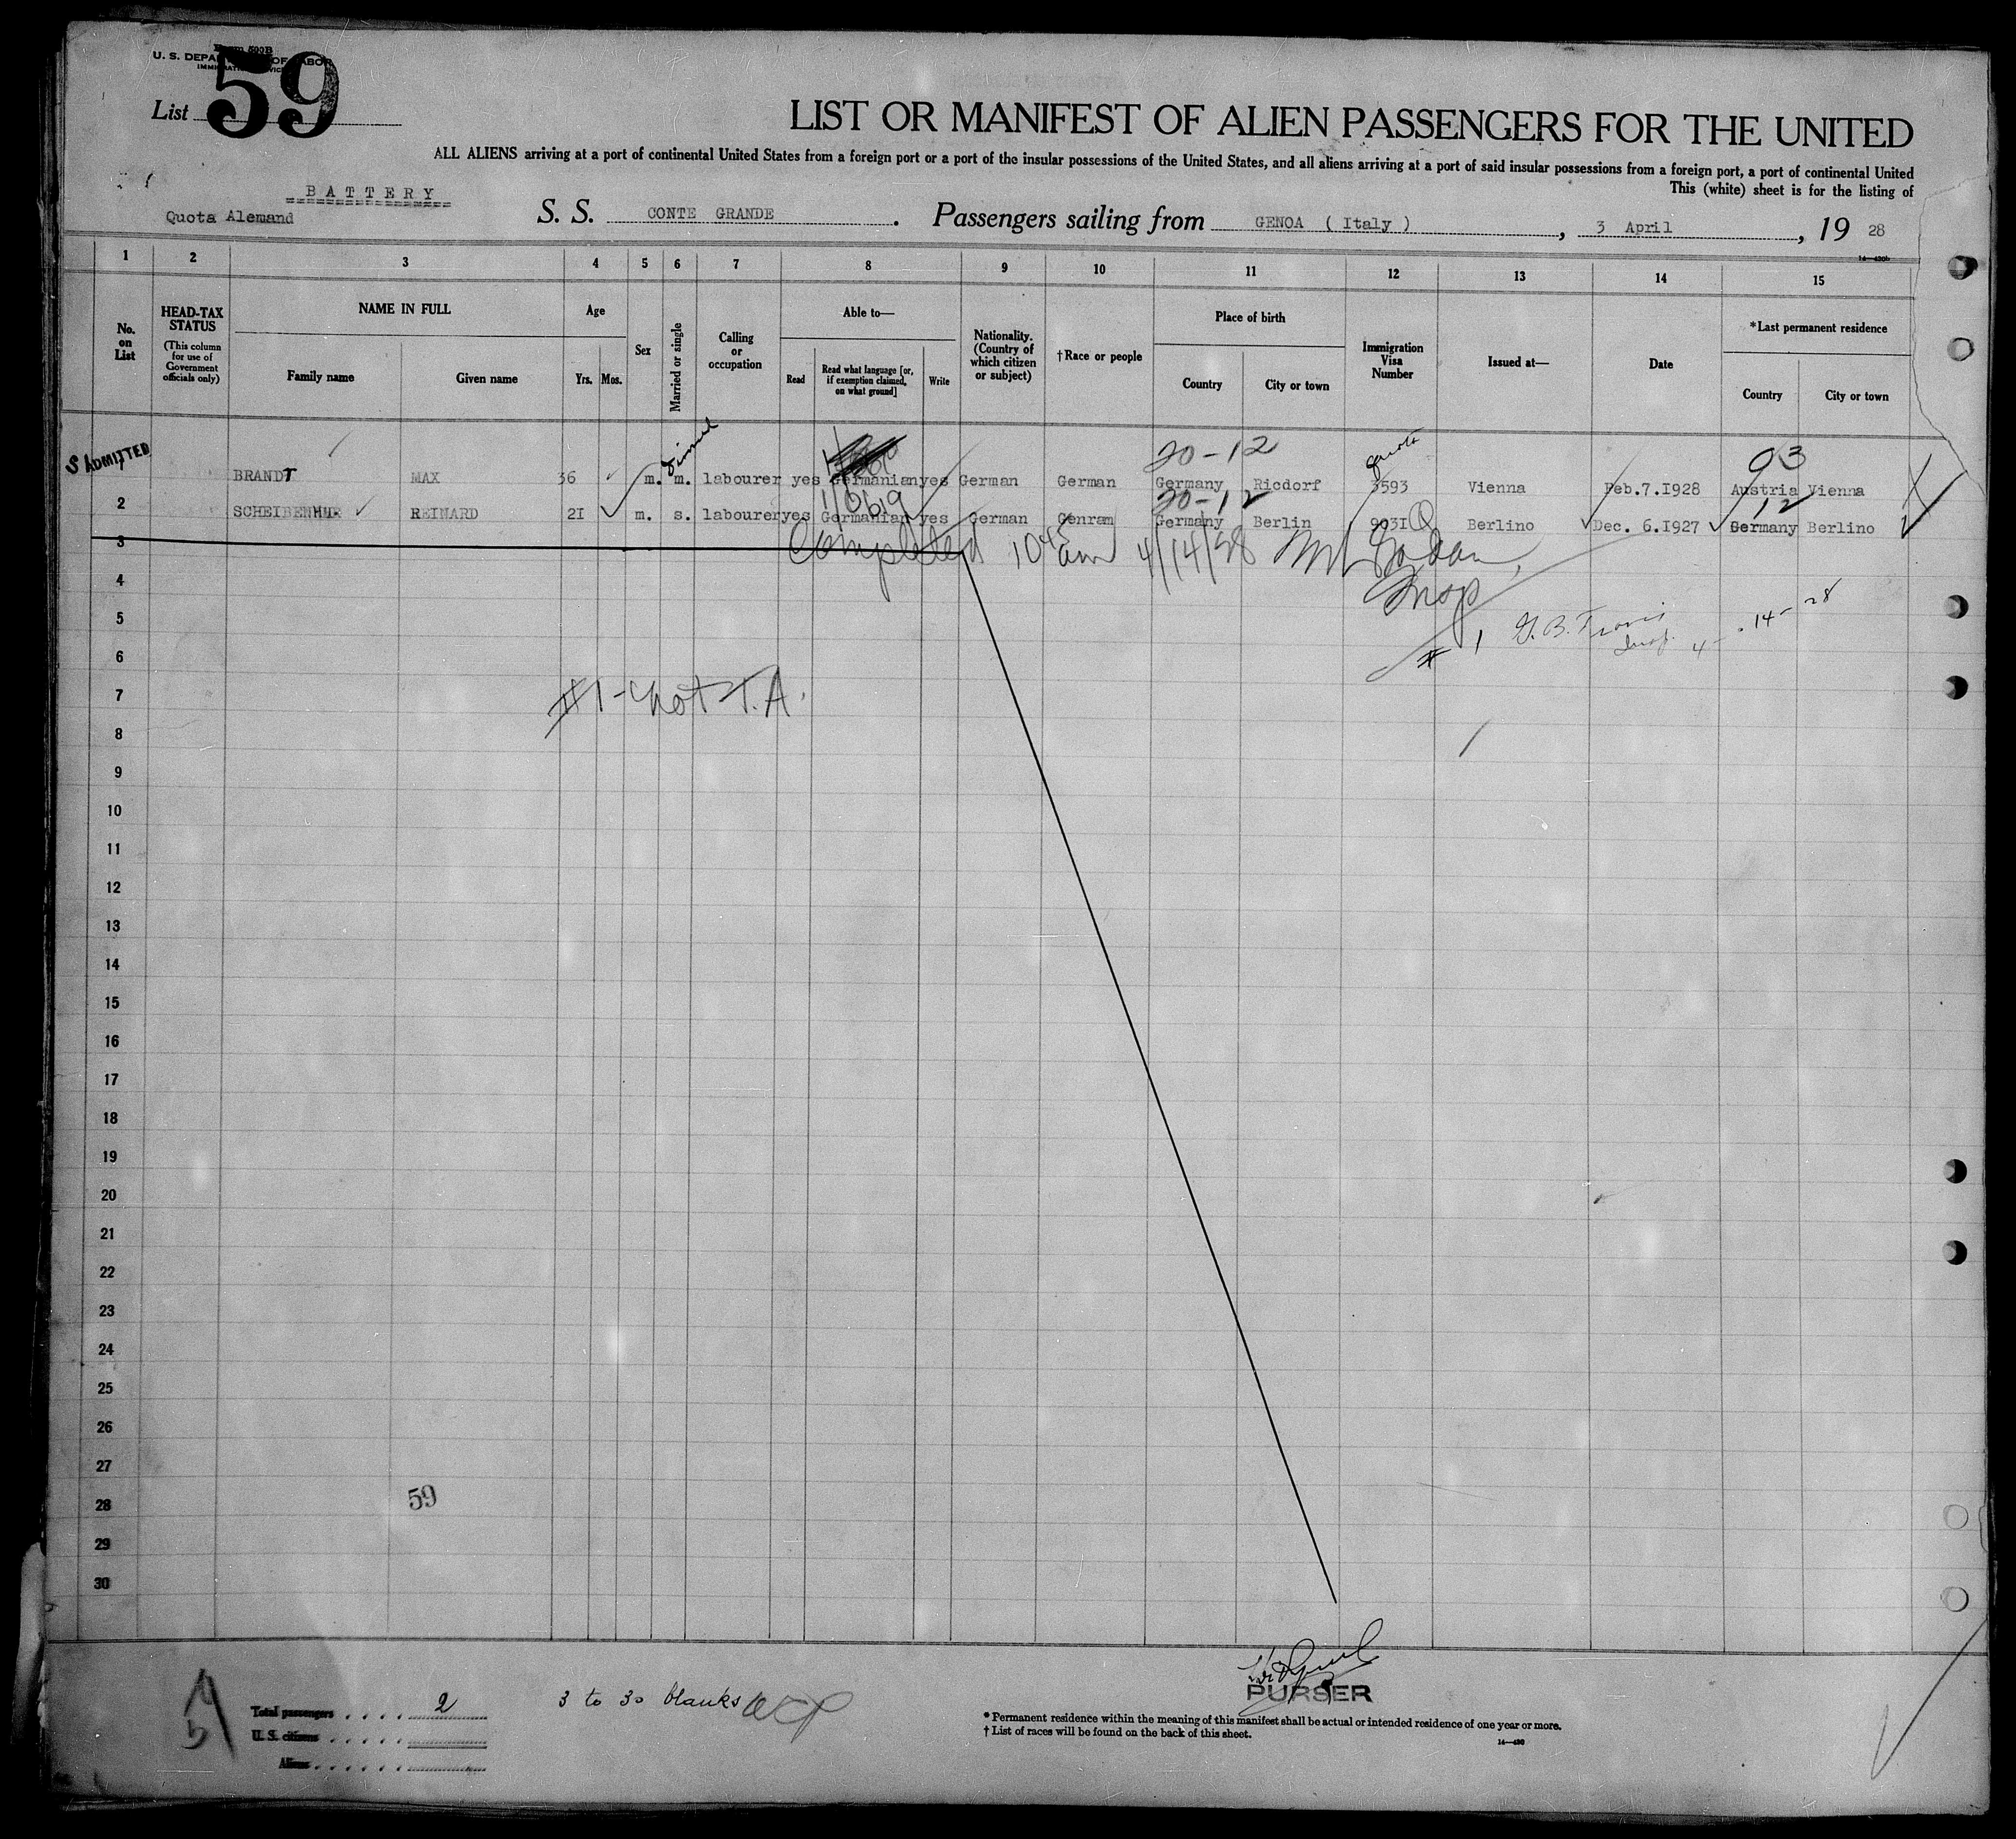 Form 500B
U. S. DEPARTMENT OF LABOR
IMMIGRATION SERVICE
List 59
LIST OR MANIFEST OF ALIEN PASSENGERS FOR THE UNITED
ALL ALIENS arriving at a port of continental United States from a foreign port or a port of the insular possessions of the United States, and all aliens arriving at a port of said insular possessions from a foreign port, a port of continental United
This (white) sheet is for the listing of
BATTERY
Quota Alemand
S. S. CONTE GRANDE. Passengers sailing from GENOA ( Italy ), 3 April, 19 28
1 2 3 4 5 6 7 8 9 10 11 12 13 14 15
No. on List
HEAD-TAX STATUS (This column for use of Government officials only)
NAME IN FULL
Family name Given name
Age
Yrs. Mos.
Sex
Married or single
Calling or occupation
Able to—
Read Read what language [or, if exemption claimed, on what ground] Write
Nationality. (Country of which citizen or subject)
†Race or people
Place of birth
Country City or town
Immigration Visa Number
Issued at—
Date
*Last permanent residence
Country City or town
ADMITTED
20-12 quota 93
BRANDT MAX 36 m. m. labourer yes Germanian yes German German Germany Ricdorf 3593 Vienna Feb.7.I928 Austria Vienna
20-12 12
2 SCHEIBENHUE REINARD 2I m. s. labourer yes Germanian yes German Genram Germany Berlin 903I Q Berlino Dec. 6.I927 Germany Berlino
3 Completed 10 45 am 4/14/28
Insp
4
5 # 1 G. B. Travis
Insp. 4-14-28
6
7 #1-not T.A.
8
9
10
11
12
13
14
15
16
17
18
19
20
21
22
23
24
25
26
27
28 59
29
30
Total passengers . . . . 2
U. S. citizens . . . . .
Aliens . . . . . .
3 to 30 blanks
PURSER
* Permanent residence within the meaning of this manifest shall be actual or intended residence of one year or more.
† List of races will be found on the back of this sheet.
14—430